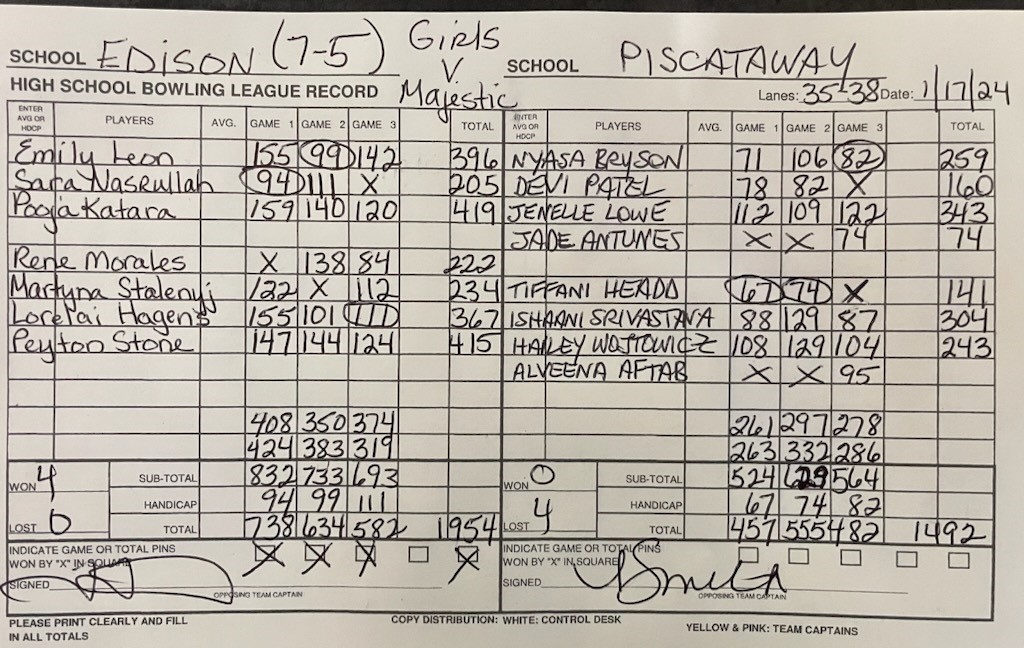 Girls
SCHOOL EDISON (7-5) V. SCHOOL PISCATAWAY
HIGH SCHOOL BOWLING LEAGUE RECORD Majestic Lanes: 35-38 Date: 1/17/24
ENTER AVG OR HDCP PLAYERS AVG. GAME 1 GAME 2 GAME 3 TOTAL ENTER AVG OR HDCP PLAYERS AVG. GAME 1 GAME 2 GAME 3 TOTAL
Emily Leon 155 99 142 396 NYASA BRYSON 71 106 82 259
Sara Nasrullah 94 111 X 205 DEVI PATEL 78 82 X 160
Pooja Katara 159 140 120 419 JENELLE LOWE 112 109 122 343
JADE ANTUNES X X 74 74
Rene Morales X 138 84 222
Martyna Stalenyj 122 X 112 234 TIFFANI HEADD 67 74 X 141
Lorelai Hagens 155 101 111 367 ISHAANI SRIVASTAVA 88 129 87 304
Peyton Stone 147 144 124 415 HAILEY WOJTOWICZ 108 129 104 243
ALVEENA AFTAB X X 95
408 350 374 261 297 278
424 383 319 263 332 286
WON 4 SUB-TOTAL 832 733 693 WON 0 SUB-TOTAL 524 629 564
HANDICAP 94 99 111 HANDICAP 67 74 82
LOST 0 TOTAL 738 634 582 1954 LOST 4 TOTAL 457 555 482 1492
INDICATE GAME OR TOTAL PINS WON BY "X" IN SQUARE X X X X INDICATE GAME OR TOTAL PINS WON BY "X" IN SQUARE
SIGNED OPPOSING TEAM CAPTAIN SIGNED OPPOSING TEAM CAPTAIN
PLEASE PRINT CLEARLY AND FILL IN ALL TOTALS COPY DISTRIBUTION: WHITE: CONTROL DESK YELLOW & PINK: TEAM CAPTAINS